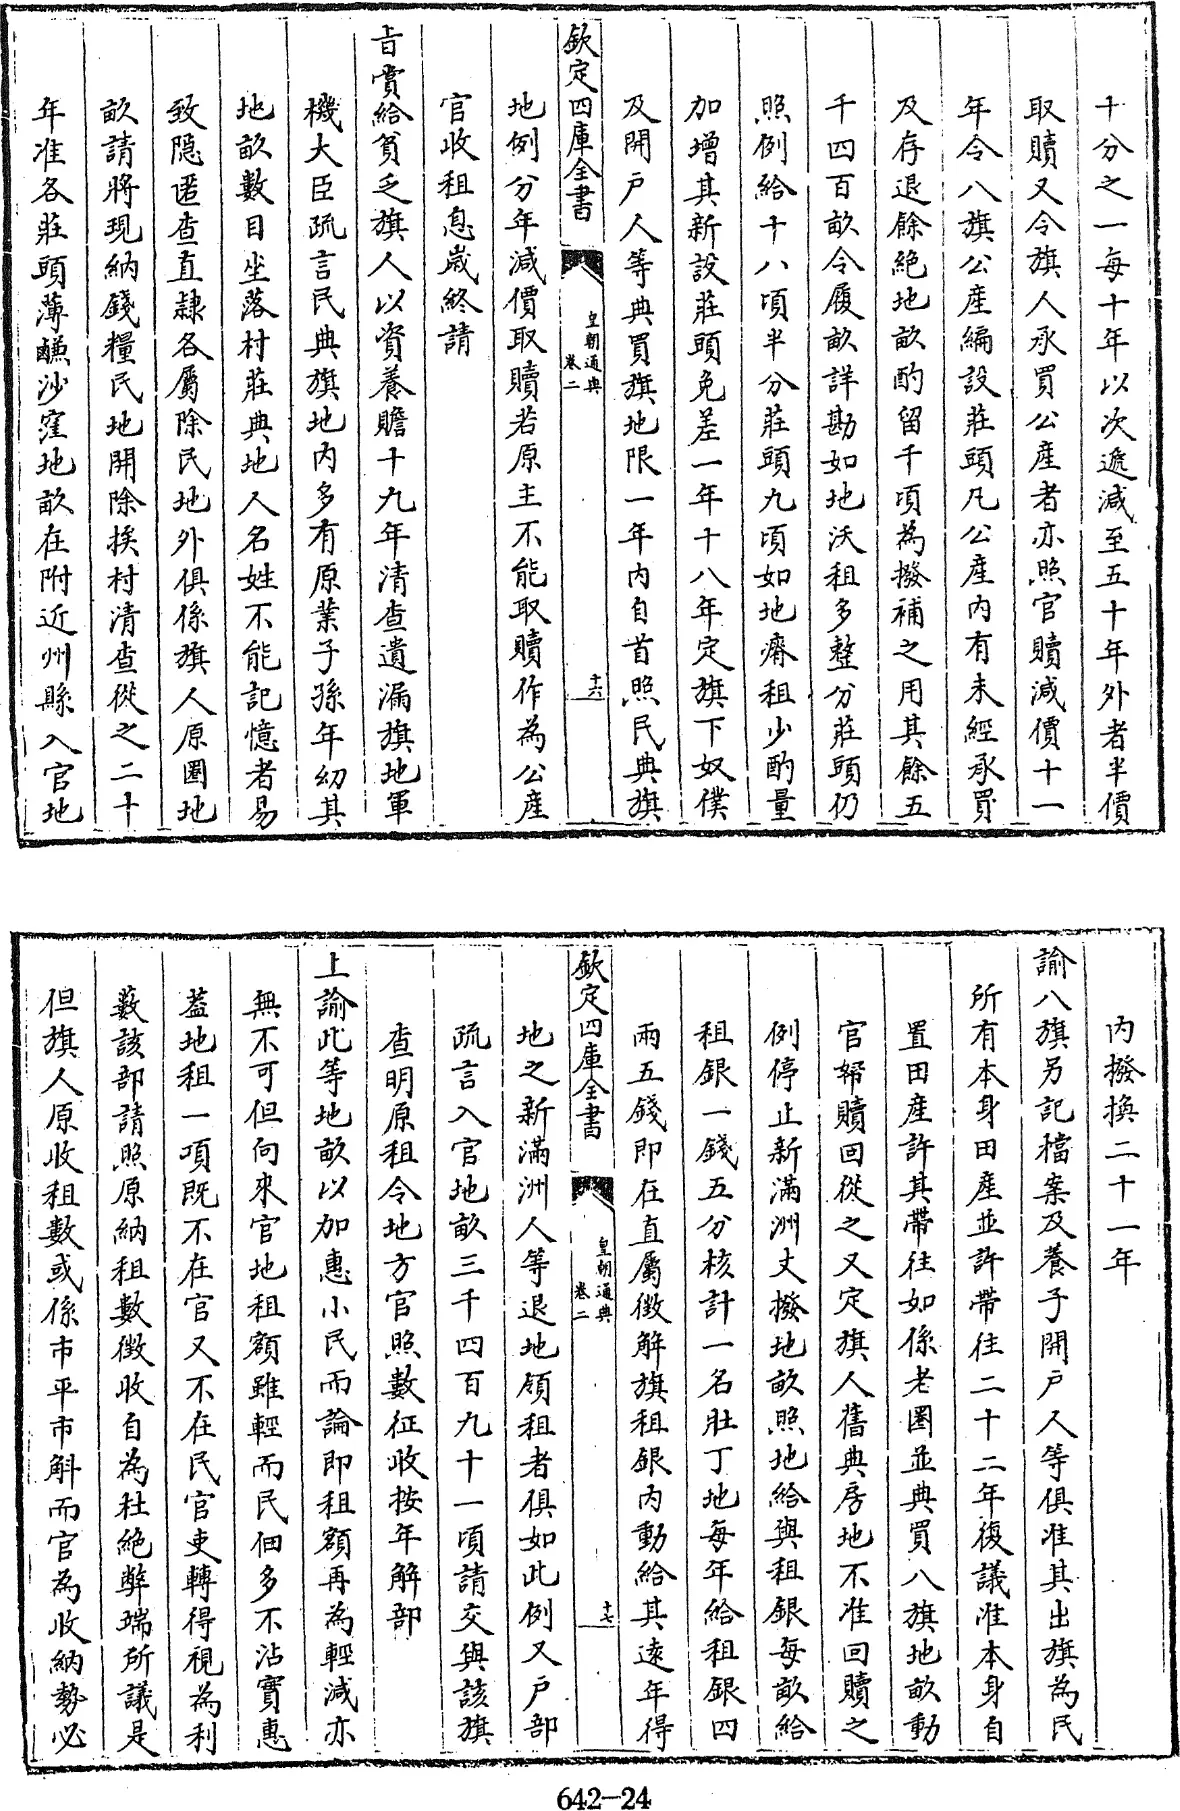 十分之一每十年以次遞減至五十年外者半價
取贖又令旗人承買公產者亦照官贖減價十一
年令八旗公產編設莊頭凡公產内有未經承買
及存退餘絶地畝酌留千頃為撥補之用其餘五
千四百畝令履畝詳勘如地沃租多整分莊頭仍
照例給十八頃半分莊頭九頃如地瘠租少酌量
加增其新設莊頭免差一年十八年定旗下奴僕
及開户人等典買旗地限一年内自首照民典旗
欽定四庫全書
皇朝通典
卷二
十六
地例分年減價取贖若原主不能取贖作為公產
官收租息歲終請
旨賞給貧乏旗人以資養贍十九年清查遺漏旗地軍
機大臣疏言民典旗地内多有原業子孫年幼其
地畝數目坐落村莊典地人名姓不能記憶者易
致隠匿查直隸各屬除民地外俱係旗人原圈地
畝請將現納錢糧民地開除挨村清查從之二十
年准各莊頭薄鹻沙窪地畝在附近州縣入官地
内撥換二十一年
諭八旗另記檔案及養子開户人等俱准其出旗為民
所有本身田產並許帶往二十二年復議准本身自
置田產許其帶往如係老圈並典買八旗地畝動
官帑贖回從之又定旗人舊典房地不准回贖之
例停止新滿洲丈撥地畝照地給與租銀每畝給
租銀一錢五分核計一名壯丁地每年給租銀四
兩五錢即在直屬徴解旗租銀内動給其遠年得
欽定四庫全書
皇朝通典
卷二
十七
地之新滿洲人等退地領租者俱如此例又户部
疏言入官地畝三千四百九十一頃請交與該旗
查明原租令地方官照數征收按年解部
上諭此等地畝以加惠小民而論即租額再為輕減亦
無不可但向來官地租額雖輕而民佃多不沾實惠
蓋地租一項既不在官又不在民官吏轉得視為利
藪該部請照原納租數徴收自為杜絶弊端所議是
但旗人原收租數或係市平市斛而官為收納勢必
642-24